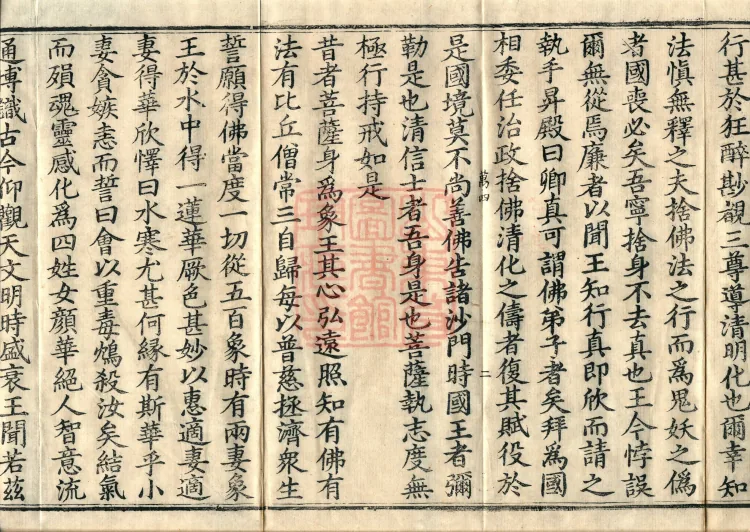 行甚於狂醉尠觀三尊導清明化也爾幸知
法慎無釋之夫捨佛法之行而為鬼妖之偽
者國喪必矣吾寧捨身不去真也王令悖誤
爾無從焉廉者以聞王知行真即欣而請之
執手昇殿曰卿真可謂佛弟子者矣拜為國
相委任治政捨佛清化之儔者復其賦役於
萬四
二
是國境莫不尚善佛告諸沙門時國王者彌
勒是也清信士者吾身是也菩薩執志度無
極行持戒如是
昔者菩薩身為象王其心弘遠照知有佛有
法有比丘僧常三自歸每以普慈拯濟衆生
誓願得佛當度一切從五百象時有兩妻象
王於水中得一蓮華厥色甚妙以惠適妻適
妻得華欣懌曰水寒尤甚何緣有斯華乎小
妻貪嫉恚而誓曰會以重毒鴆殺汝矣結氣
而殞魂靈感化為四姓女顏華絕人智意流
通博識古今仰觀天文明時盛衰王聞若茲